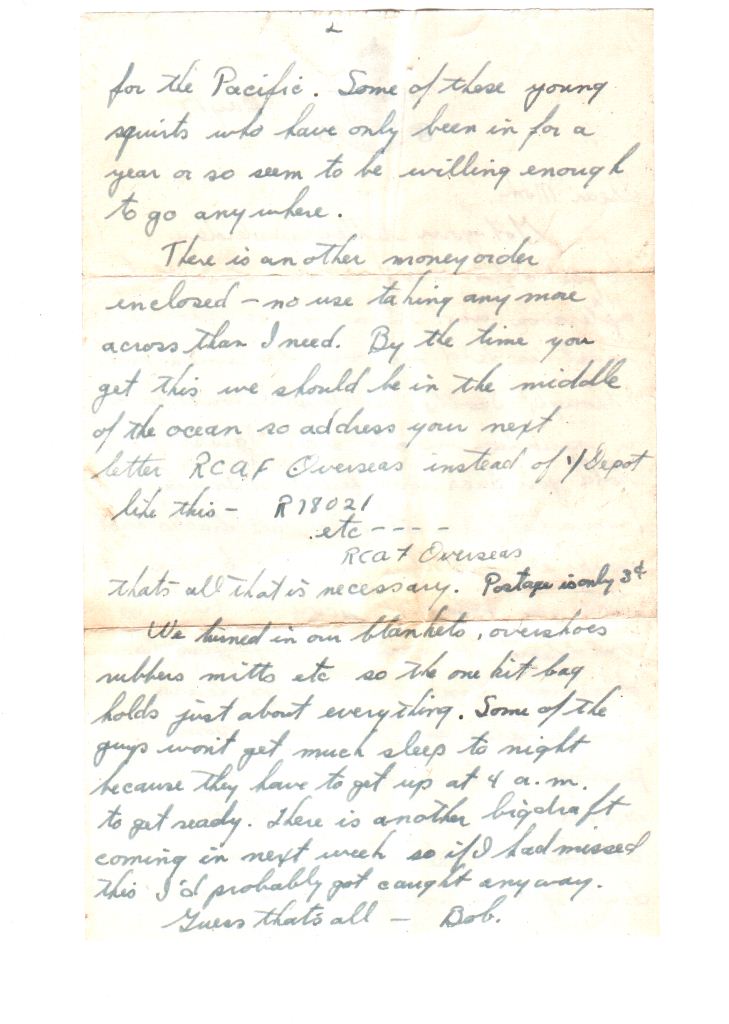 2
for the Pacific. Some of these young
squirts who have only been in for a
year or so seem to be willing enough
to go anywhere.
There is another money order
enclosed – no use taking any more
across than I need. By the time you
get this we should be in the middle
of the ocean so address your next
letter RCAF Overseas instead of 1/Depot
like this – R78021
etc ----
RCAF Overseas
thats all that is necessary. Postage is only 3¢
We turned in our blankets, overshoes
rubbers mitts etc so the one kit bag
holds just about everything. Some of the
guys won't get much sleep to night
because they have to get up at 4 a.m.
to get ready. There is another big draft
coming in next week so if I had missed
this I'd probably get caught anyway.
Guess that's all – Bob.